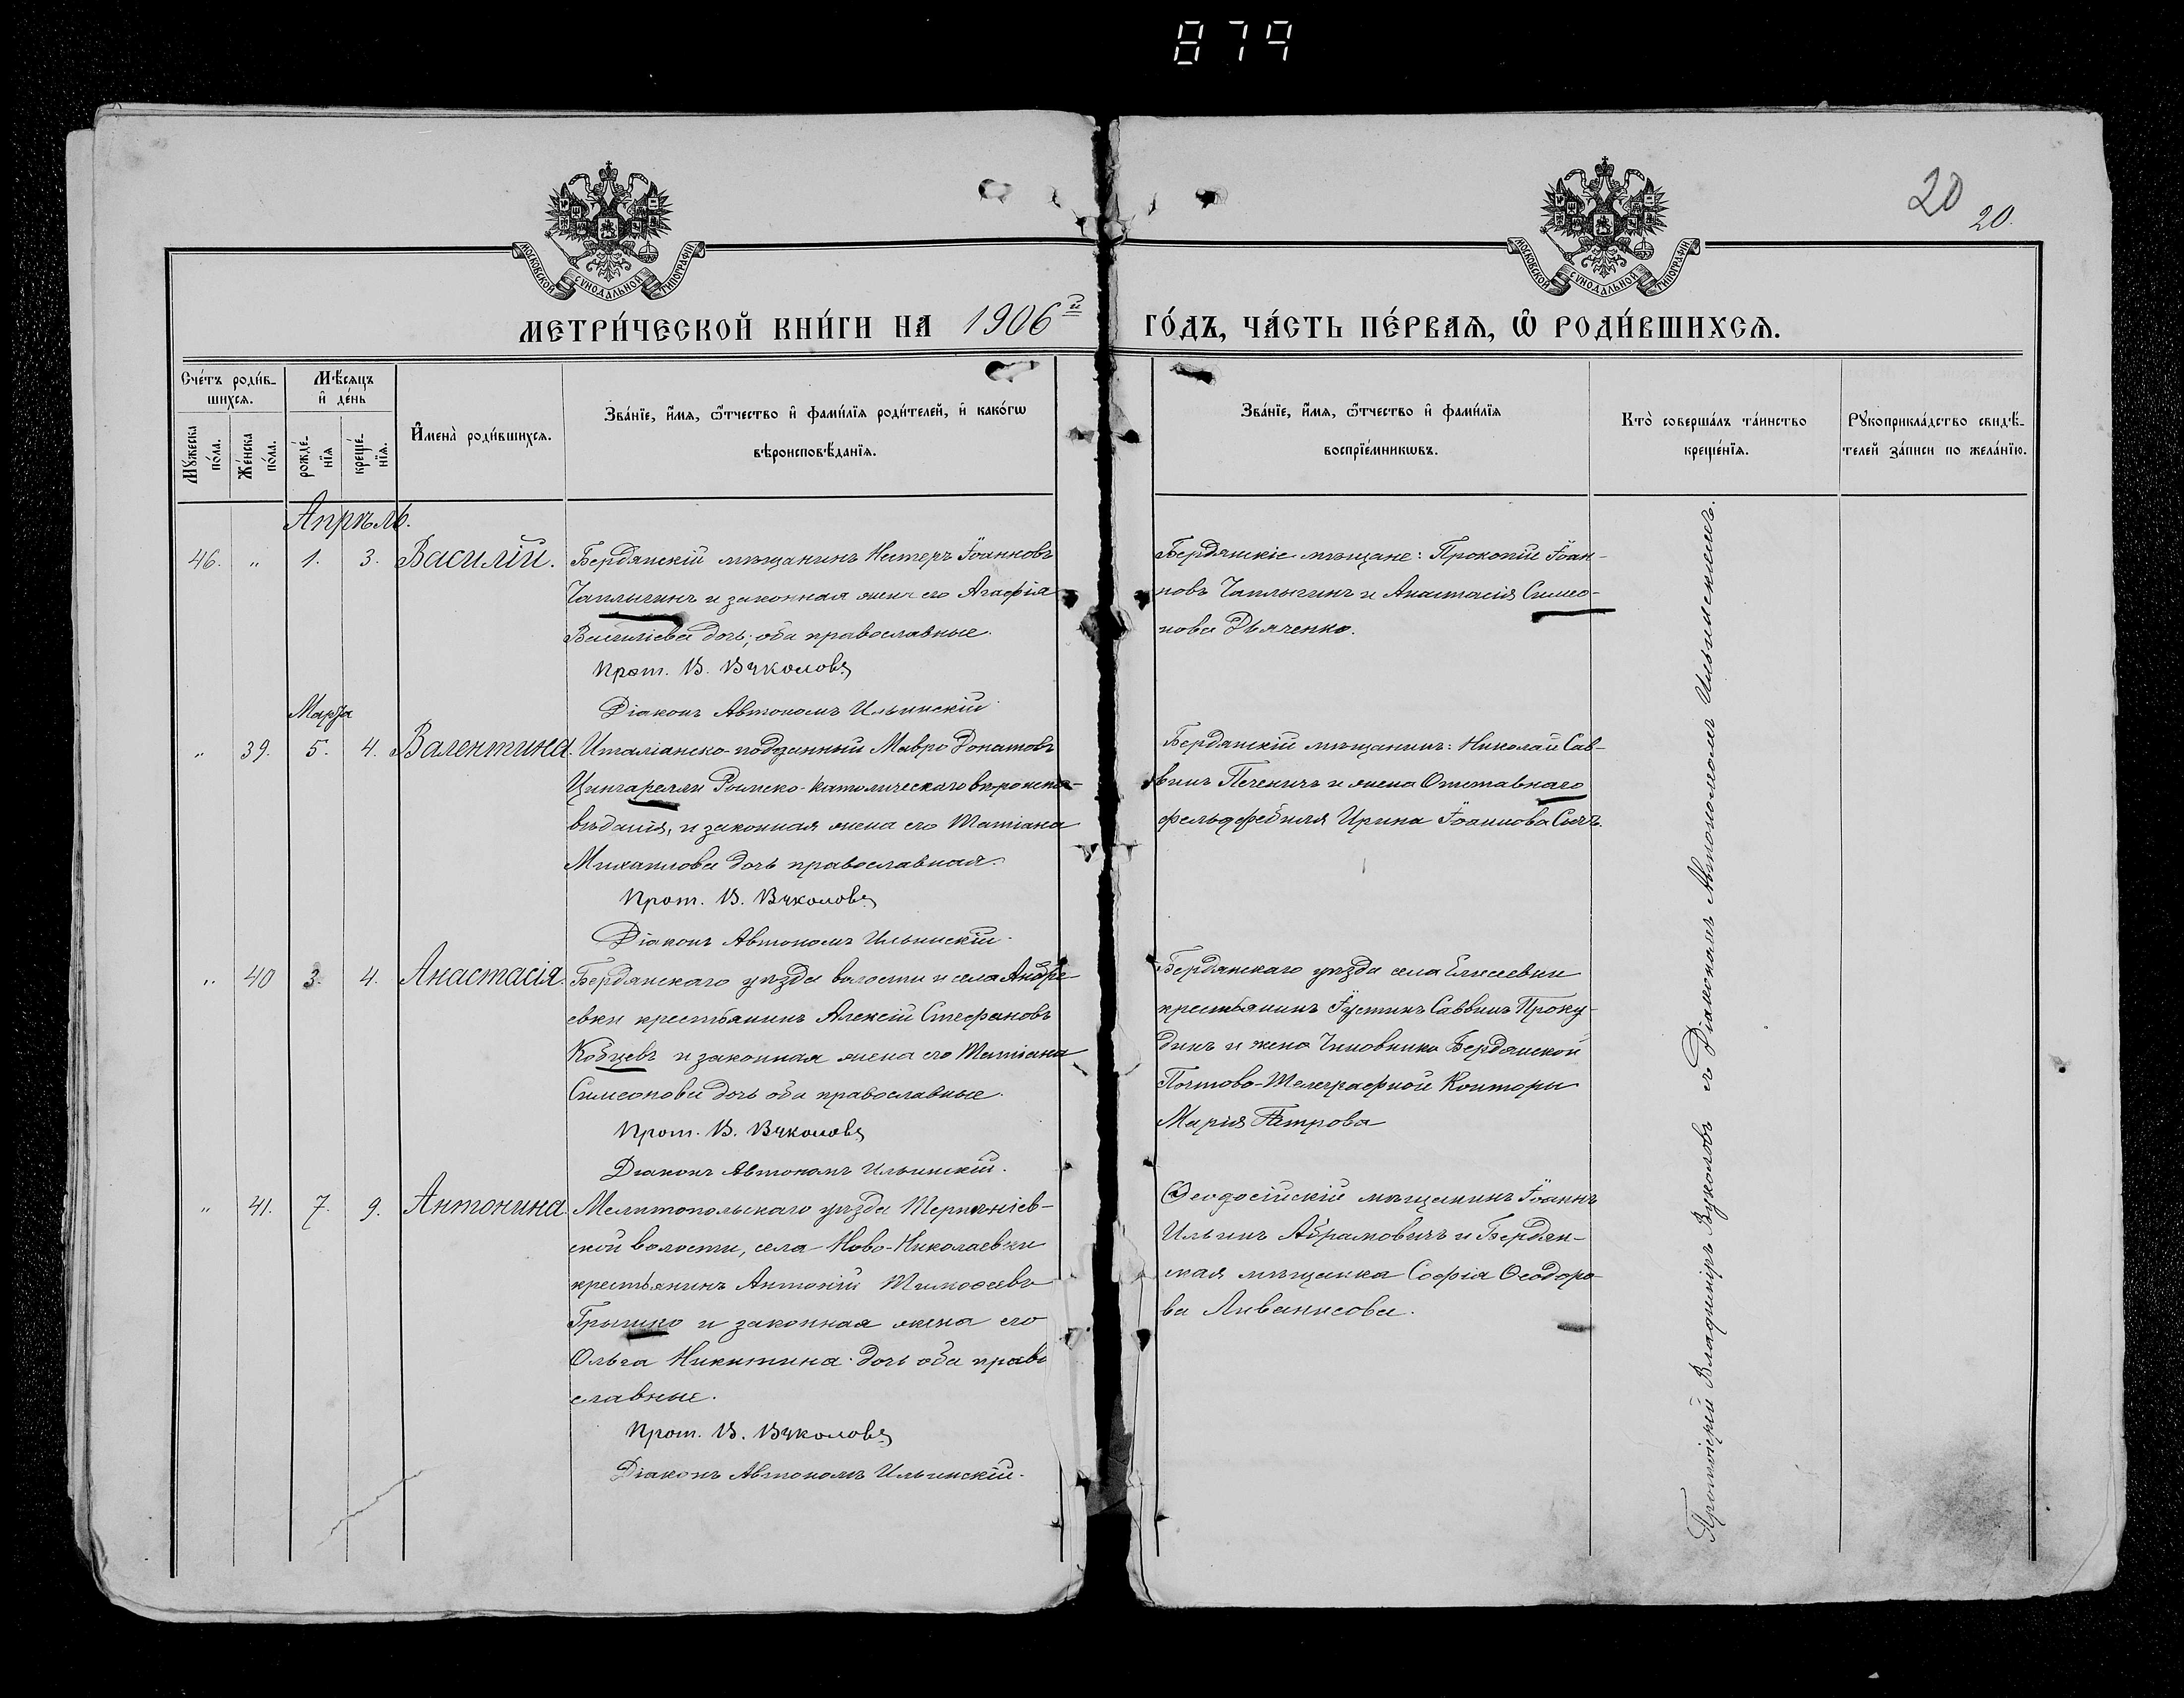 879
20
20.
МОСКОВСКОЙ СѴНОДАЛЬНОЙ ТИПОГРАФІИ
МОСКОВСКОЙ СѴНОДАЛЬНОЙ ТИПОГРАФІИ
МЕТРИ́ЧЕСКОЙ КНИ́ГИ НА 1906й
ГО́ДЪ, ЧА́СТЬ ПЕ́РВАЯ, Ѡ РОДИ́ВШИХСЯ.
Сче́тъ роди́в-
шихся.
Мѣ́сяцъ
и де́нь
Мꙋ́жеска
по́ла.
Же́нска
по́ла.
рожде́-
нїя
креще́-
нїя.
Имена̀ роди́вшихся.
Зва́нїе, и́мя, ѻ҆́тчество и фами́лїя роди́телей, и како́гѡ
вѣроисповѣ́данїя.
Зва́нїе, и́мя, ѻ҆́тчество и фами́лїя
воспрїе́мникѡвъ.
Кто̀ соверша́лъ та́инство
креще́нїя.
Рꙋкоприкла́дство свидѣ́-
телей за́писи по жела́нїю.
Апрѣль.
46. " 1. 3. Василій. Бердянскій мѣщанинъ Іоанновъ
Чаплыгинъ и законная жена его Агафія
Василіева дочь; оба православные.
Прот. В. Вуколовъ
Діаконъ Автономъ Ильинскій
Бердянскіе мѣщане: Прокопій Іоан-
новъ Чаплыгинъ и Анастасія Симео-
нова Дьяченко.
Марта
" 39. 5. 4. Валентина. Итальянско-подданный Мавро Донатовъ
Цингарелли Римско-католическаго вѣроиспо-
вѣданія, и законная жена его Татіана
Михаилова дочь православная.
Прот. В. Вуколовъ
Діаконъ Автономъ Ильинскій.
Бердянскій мѣщанинъ: Николай Сав-
винъ Печеничъ и жена Отставнаго
фельдфебиля Ирина Іоаннова Сычъ.
" 40 3. 4. Анастасія. Бердянскаго уѣзда волости и села Андре
евки крестьянинъ Алексій Стефановъ
Кобцевъ и законная жена его Татіана
Симеонова дочь оба православные.
Прот. В. Вуколовъ
Діаконъ Автономъ Ильинскій.
Бердянскаго уѣзда села Елисеевки
крестьянинъ Іустинъ Саввинъ Проку-
динъ и жена Чиновника Бердянской
Почтово-Телеграфной Конторы
Марія Петрова
" 41. 7. 9. Антонина. Мелитопольскаго уѣзда Терпѣніев-
ской волости, села Ново-Николаевки
крестьянинъ Антоній Тимоѳеевъ
Грышко и законная жена его
Ольга Никитина дочь оба право
славные.
Прот. В. Вуколовъ
Діаконъ Автономъ Ильинскій.
Ѳеодосійскій мѣщанинъ Іоаннъ
Ильинъ Абрамовичъ и Бердян-
ская мѣщанка Софія Ѳеодоро-
ва Ливанисова.
Протоіерей Владиміръ Вуколовъ съ Діакономъ Автономомъ Ильинскимъ.